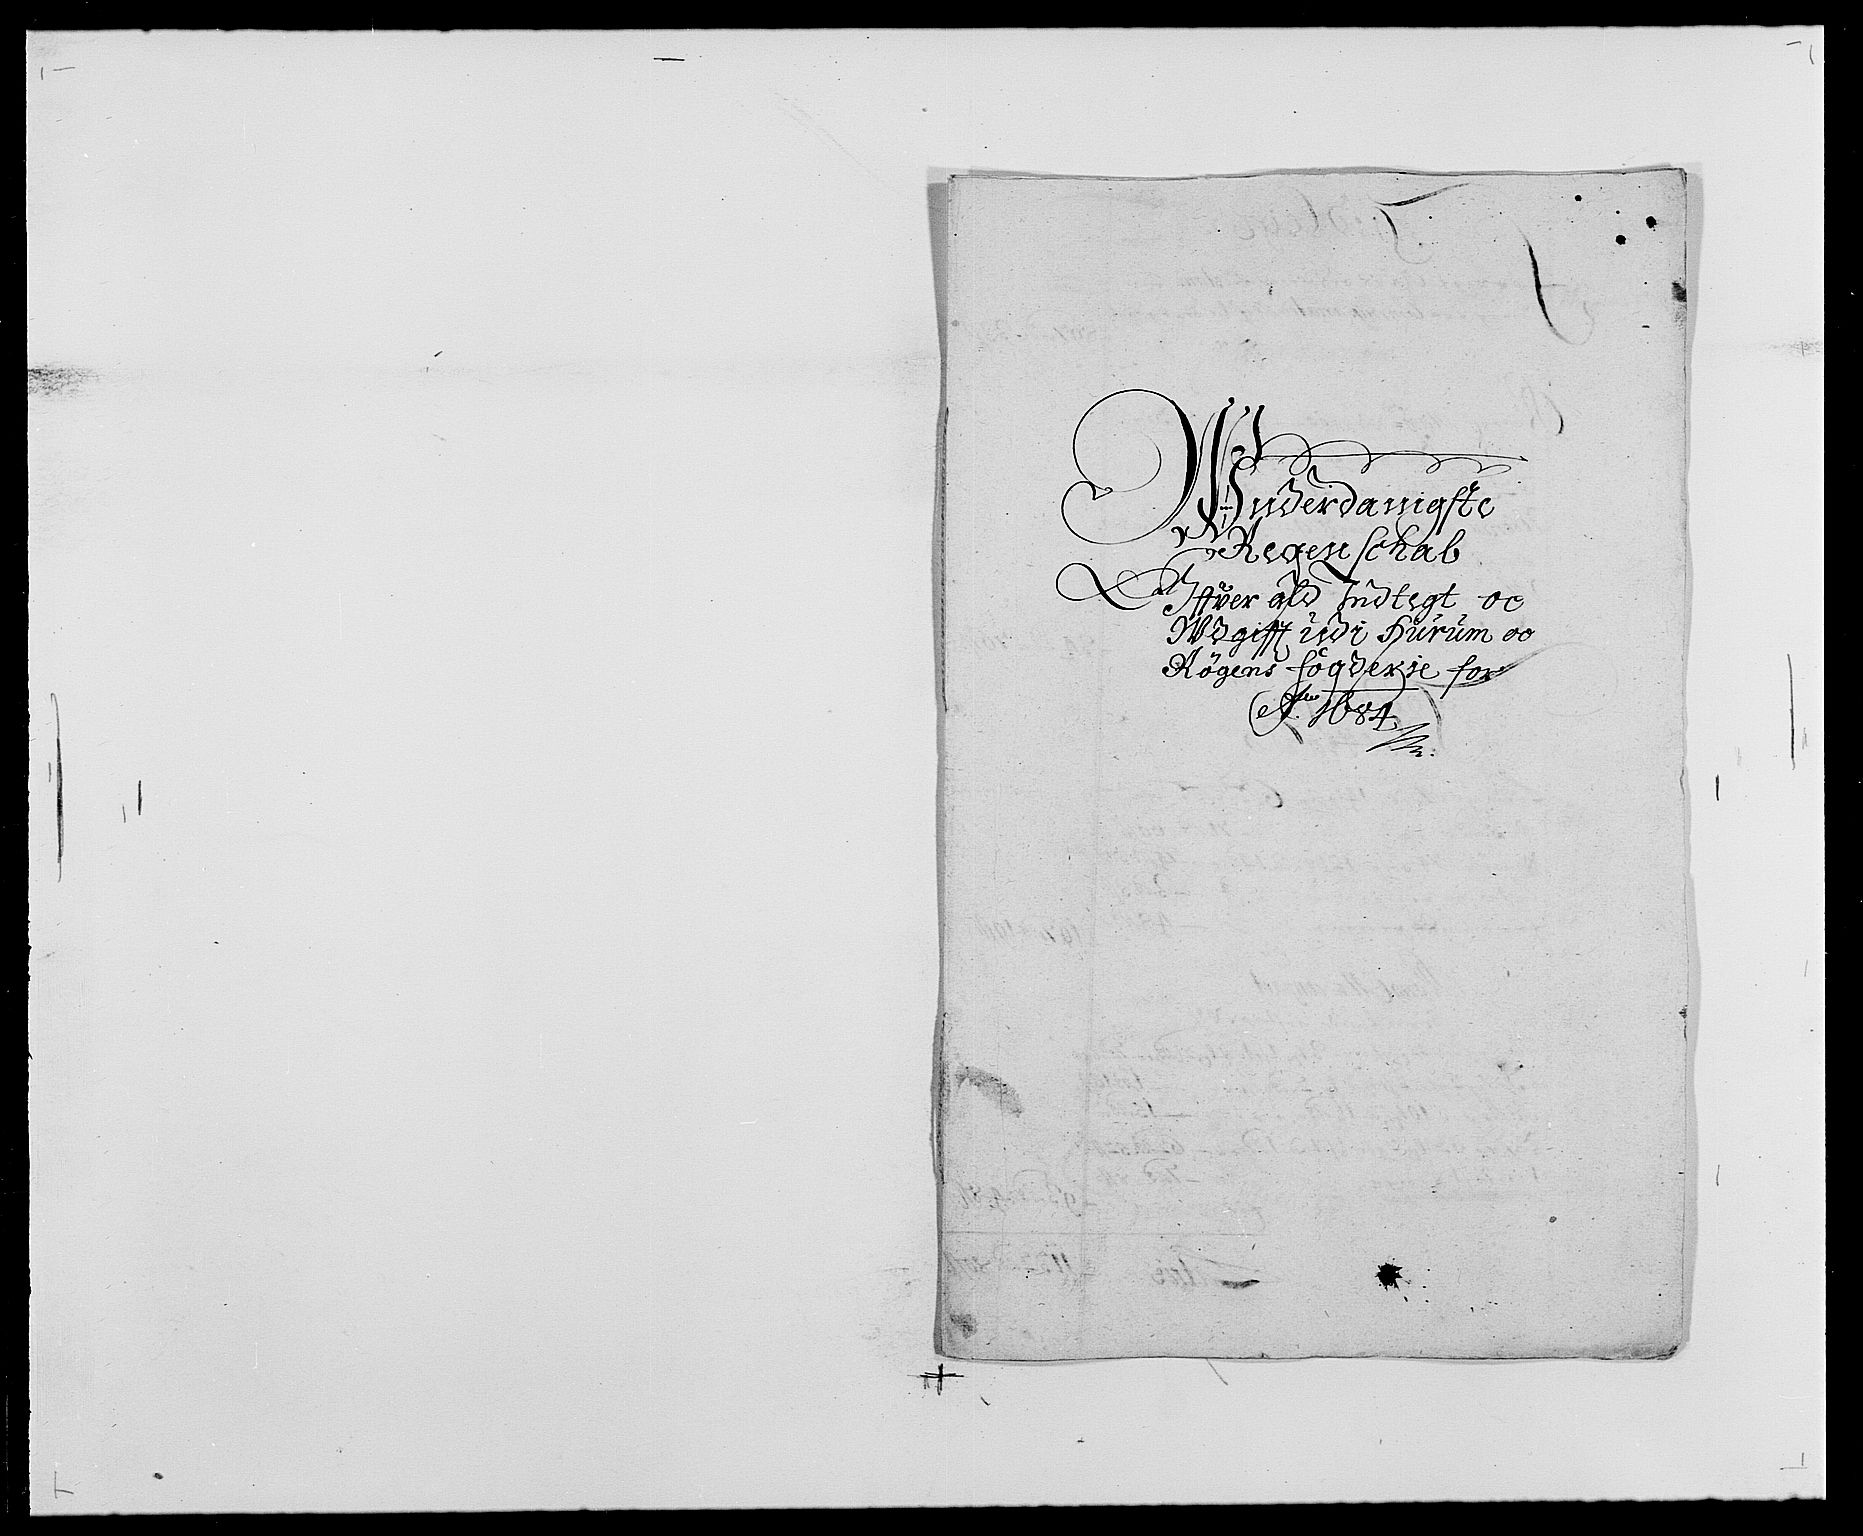 Wnderdanigste
Regenschab
Offver ald Indtegt oc
Wdgifft udi Hurum oc
Røgens fogderie for
Ao. 1684